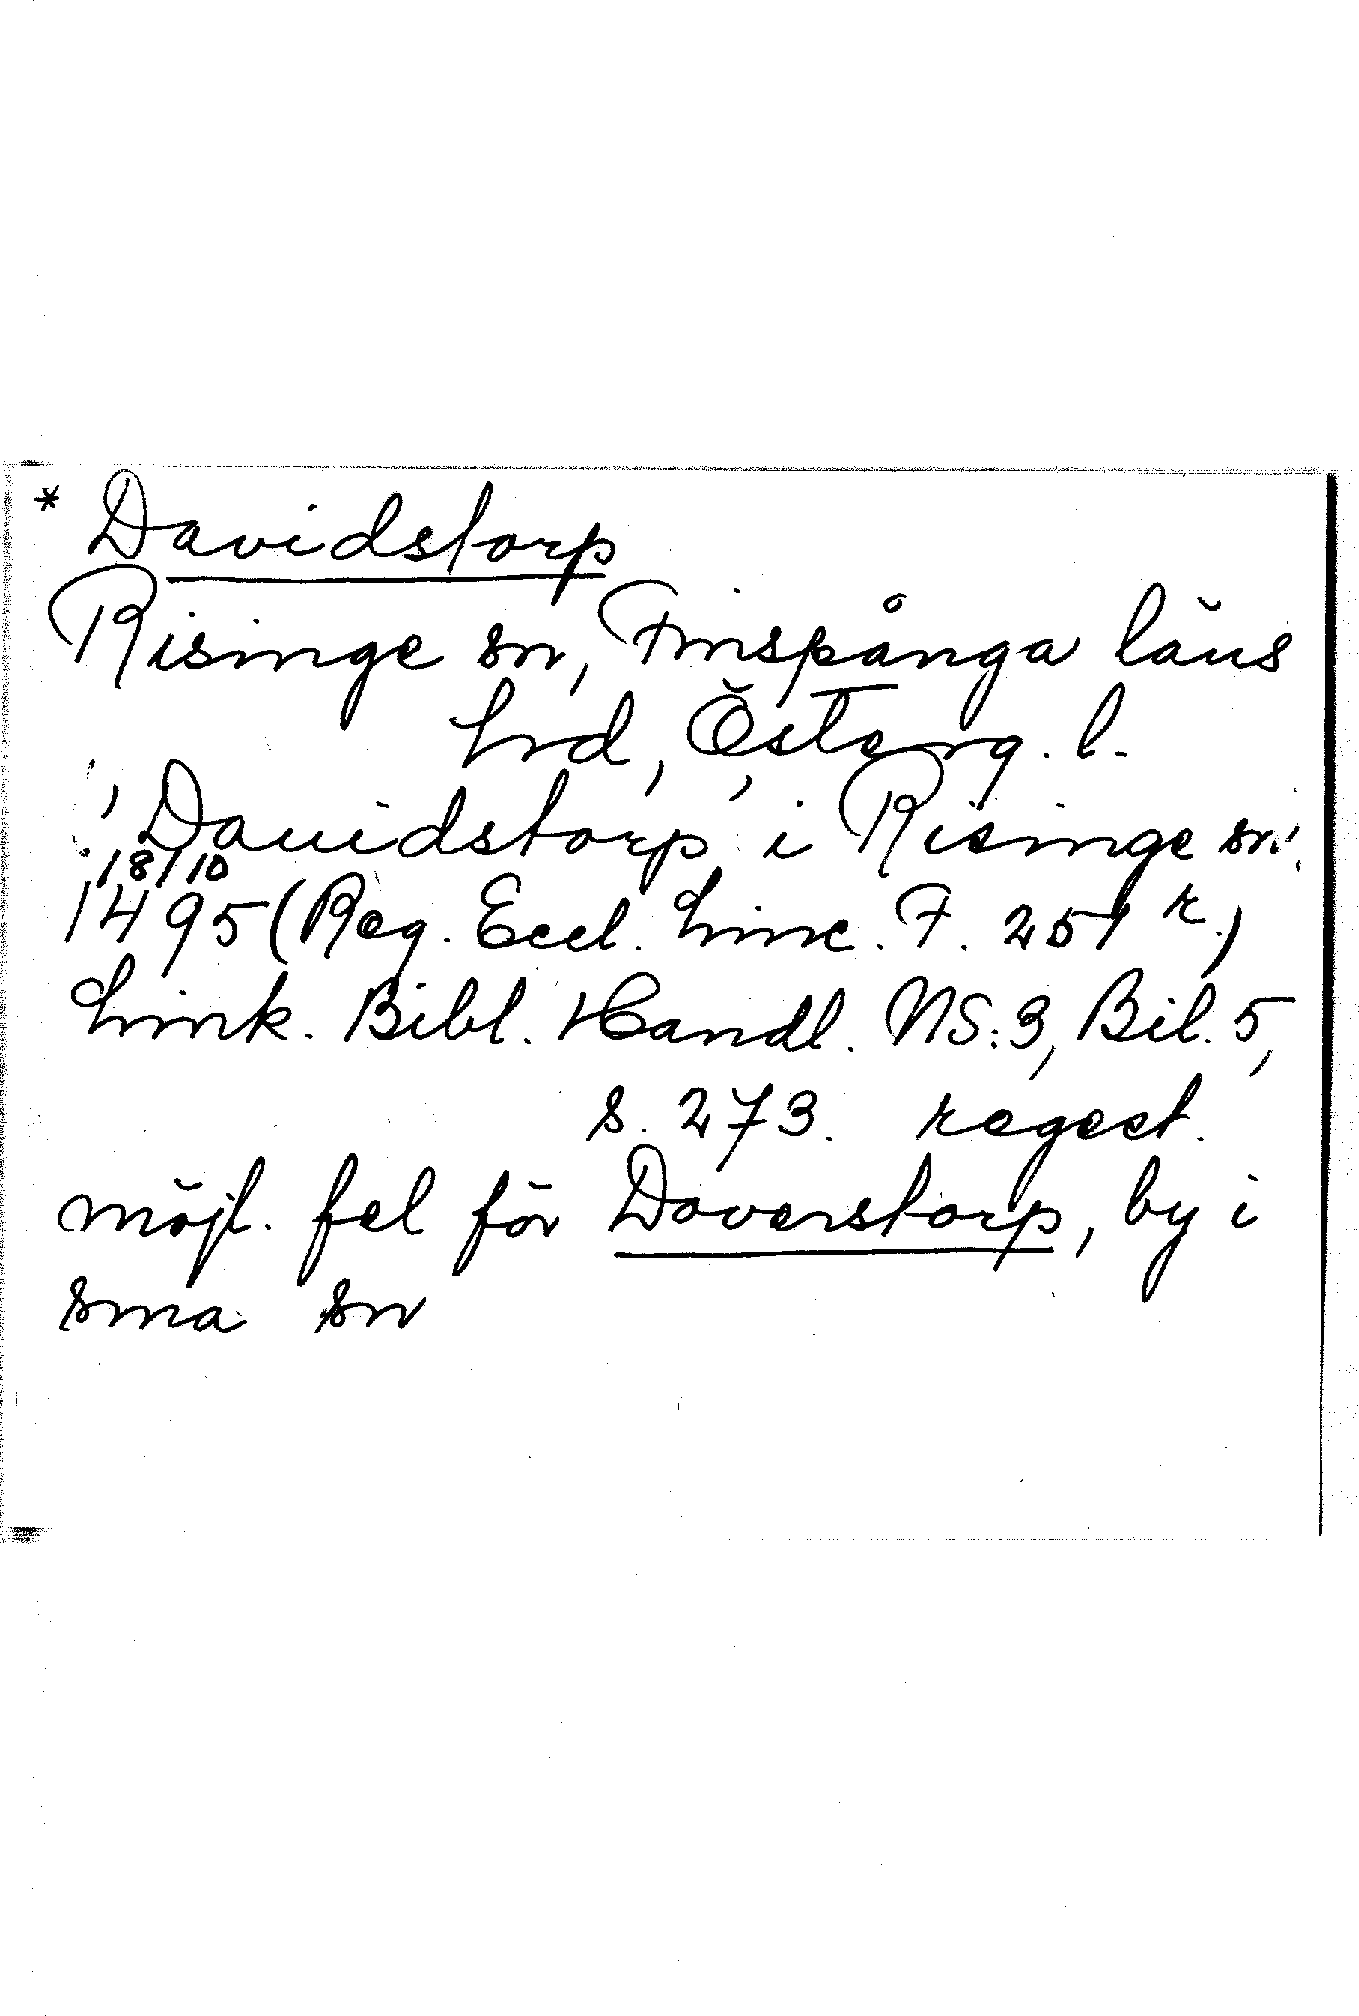 * Davidstorp
Risinge sn, Finspånga läns
hrd, Österg. l.
, Dauidstorp, i Risinge sn,
18/10
1495 (Reg. Eccl. Linc. F. 251 r.)
Link. Bibl. Handl. NS:3, Bil. 5,
s. 273. regest.
möjl. fel för Doverstorp, by i
sma sn